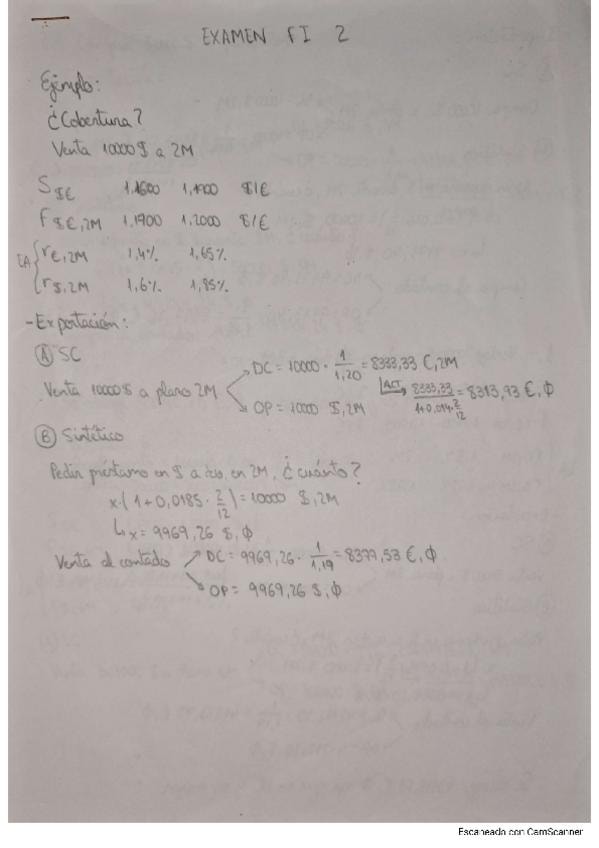 EXAMEN FI 2
Ejemplo:
¿Cobertura?
Venta 10000 $ a 2M
S $€ 1,1600 1,1900 $/€
F $€,2M 1,1900 1,2000 $/€
EA { r€,2M 1,4% 1,65%
r$,2M 1,6% 1,85%
- Exportación:
(A) SC
Venta 10000 $ a plazo 2M
DC = 10000 · 1/1,20 = 8333,33 €, 2M
ACT 8333,33 / 1+0,014·2/12 = 8313,93 €, 0
OP = 10000 $, 2M
(B) Sintético
Pedir préstamo en $ a dvo. en 2M, ¿cuánto?
x · (1 + 0,0185 · 2/12) = 10000 $, 2M
↳ x = 9969,26 $, 0
Venta al contado
DC = 9969,26 · 1/1,19 = 8377,53 €, 0
OP = 9969,26 $, 0
Escaneado con CamScanner